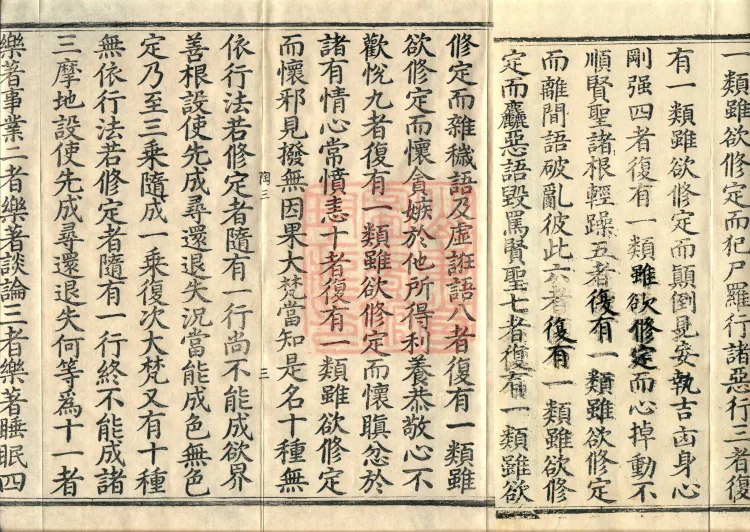 一類雖欲修定而犯尸羅行諸惡行三者復
有一類雖欲修定而顛倒見妄執吉凶身心
剛强四者復有一類雖欲修定而心掉動不
順賢聖諸根輕躁五者復有一類雖欲修定
而離間語破亂彼此六者復有一類雖欲修
定而麤惡語毀罵賢聖七者復有一類雖欲
修定而雜穢語及虛誑語八者復有一類雖
欲修定而懷貪嫉於他所得利養恭敬心不
歡悅九者復有一類雖欲修定而懷瞋忿於
諸有情心常憤恚十者復有一類雖欲修定
而懷邪見撥無因果大梵當知是名十種無
陶三 三
依行法若修定者隨有一行尚不能成欲界
善根設使先成尋還退失況當能成色無色
定乃至三乘隨成一乘復次大梵又有十種
無依行法若修定者隨有一行終不能成諸
三摩地設使先成尋還退失何等爲十一者
樂著事業二者樂著談論三者樂著睡眠四